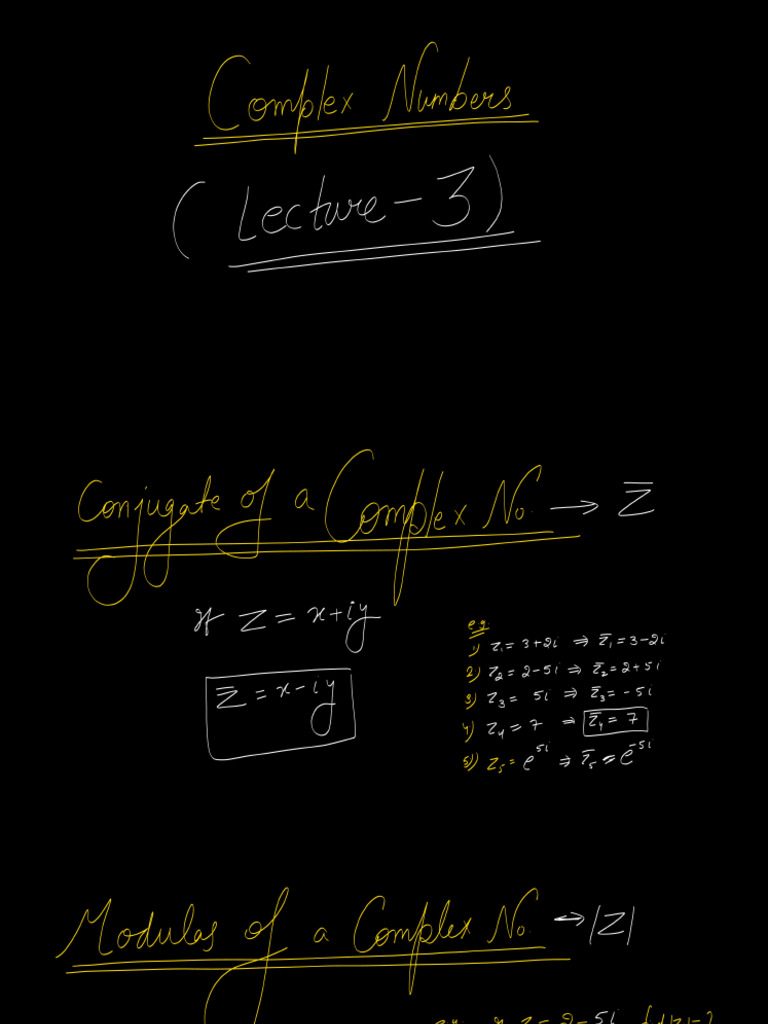 Complex Numbers
(Lecture-3)
Conjugate of a Complex No. → z̅
If z = x+iy
z̅ = x-iy
e.g
1) z₁ = 3+2i ⇒ z̅₁ = 3-2i
2) z₂ = 2-5i ⇒ z̅₂ = 2+5i
3) z₃ = 5i ⇒ z̅₃ = -5i
4) z₄ = 7 ⇒ z̅₄ = 7
5) z₅ = e⁵ⁱ ⇒ z̅₅ = e⁻⁵ⁱ
Modulas of a Complex No. → |z|
z = 2-5i